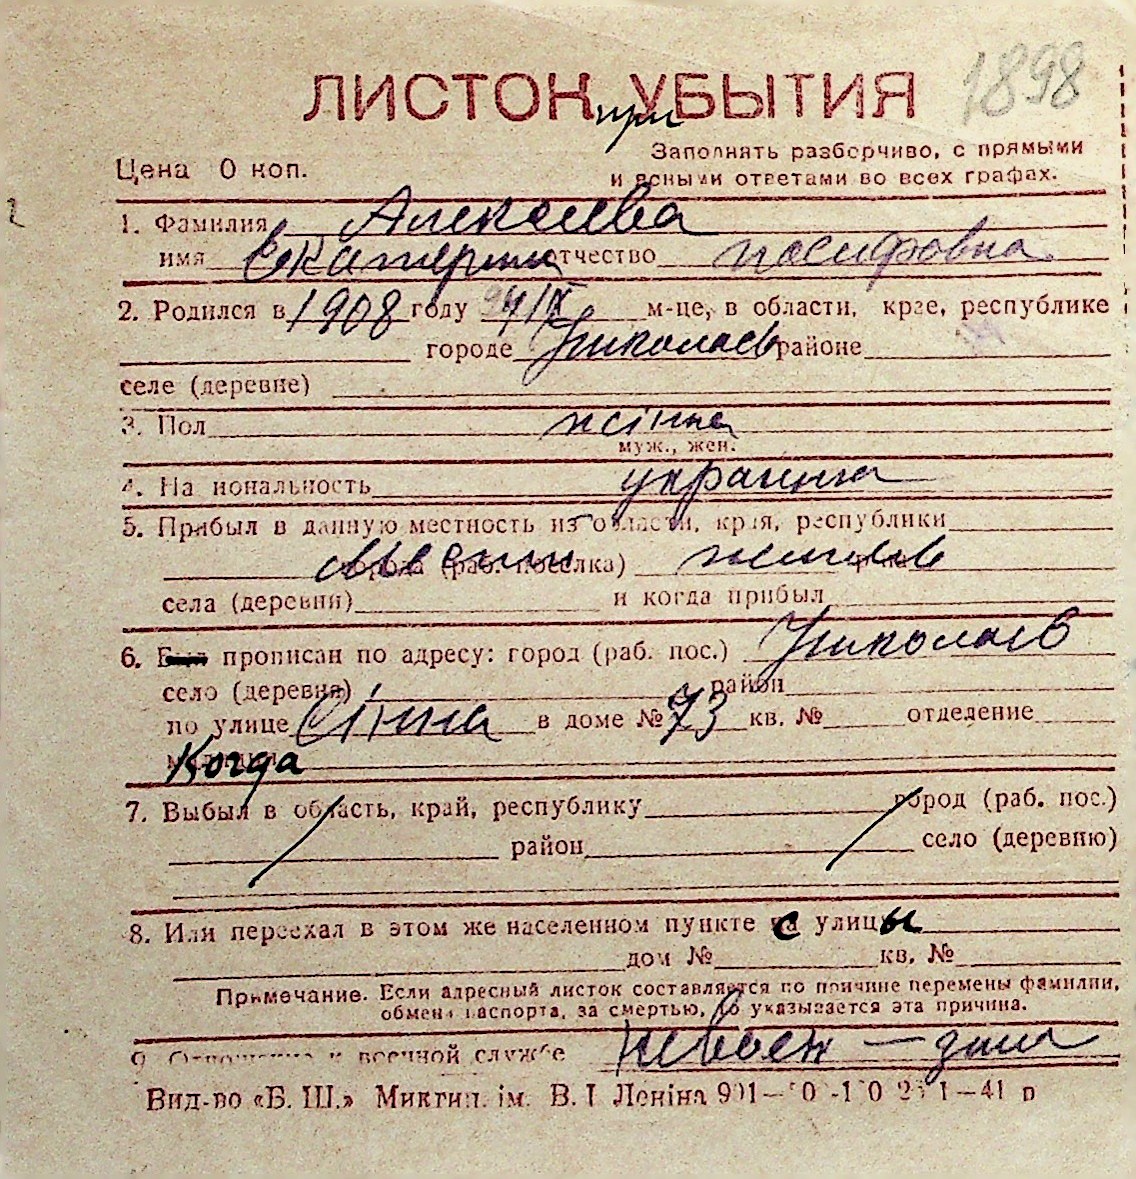 1898
ЛИСТОК при УБЫТИЯ
Цена 0 коп.
Заполнять разборчиво, с прямыми
и ясными ответами во всех графах.
1. Фамилия Алексеева
имя Екатерина отчество Иосифовна
2. Родился в 1908 году IX м-це, в области, крае, республике
городе Николаев районе
селе (деревне)
3. Пол жінка
муж., жен.
4. Национальность украинка
5. Прибыл в данную местность из области, края, республики
города (раб. поселка)
села (деревни) и когда прибыл
6. Был прописан по адресу: город (раб. пос.) Николаев
село (деревня) район
по улице в доме № 73 кв. № отделение
милиции Когда
7. Выбыл в область, край, республику город (раб. пос.)
район село (деревню)
8. Или переехал в этом же населенном пункте с улицы
дом № кв. №
Примечание. Если адресный листок составляется по причине перемены фамилии,
обмена паспорта, за смертью, то указывается эта причина.
9. Отношение к военной службе невоен
Вид-во «Б. Ш.» Миктип. ім. В. І Леніна 41 р